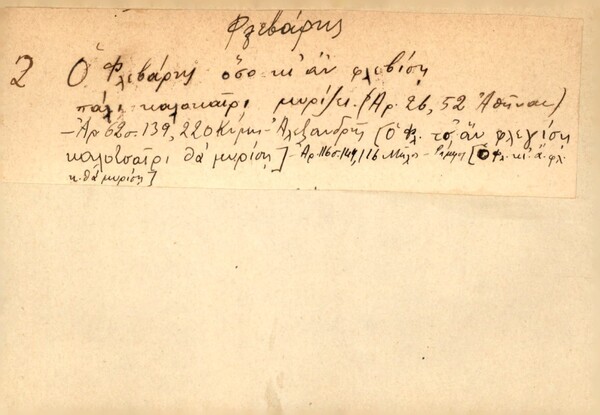 Φλεβάρης
2 Ὁ Φλεβάρης ὅσο κι' ἄν φλεβίση
πάλι καλοκαίρι μυρίζει. (Ἀρ. 26, 52 Ἀθῆναι)
– Ἀρ 62 σ. 139, 220 Κύμη – Ἀλεξανδρῆς [Ὁ Φλ. κι ἄν φλεγίση
καλοκαίρι θά μυρίση] – Ἀρ. 116 σ. 149, 116 Μῆλος – [Ὁ Φλ. κι' ἄ. φλ.
κ. θά μυρίση]